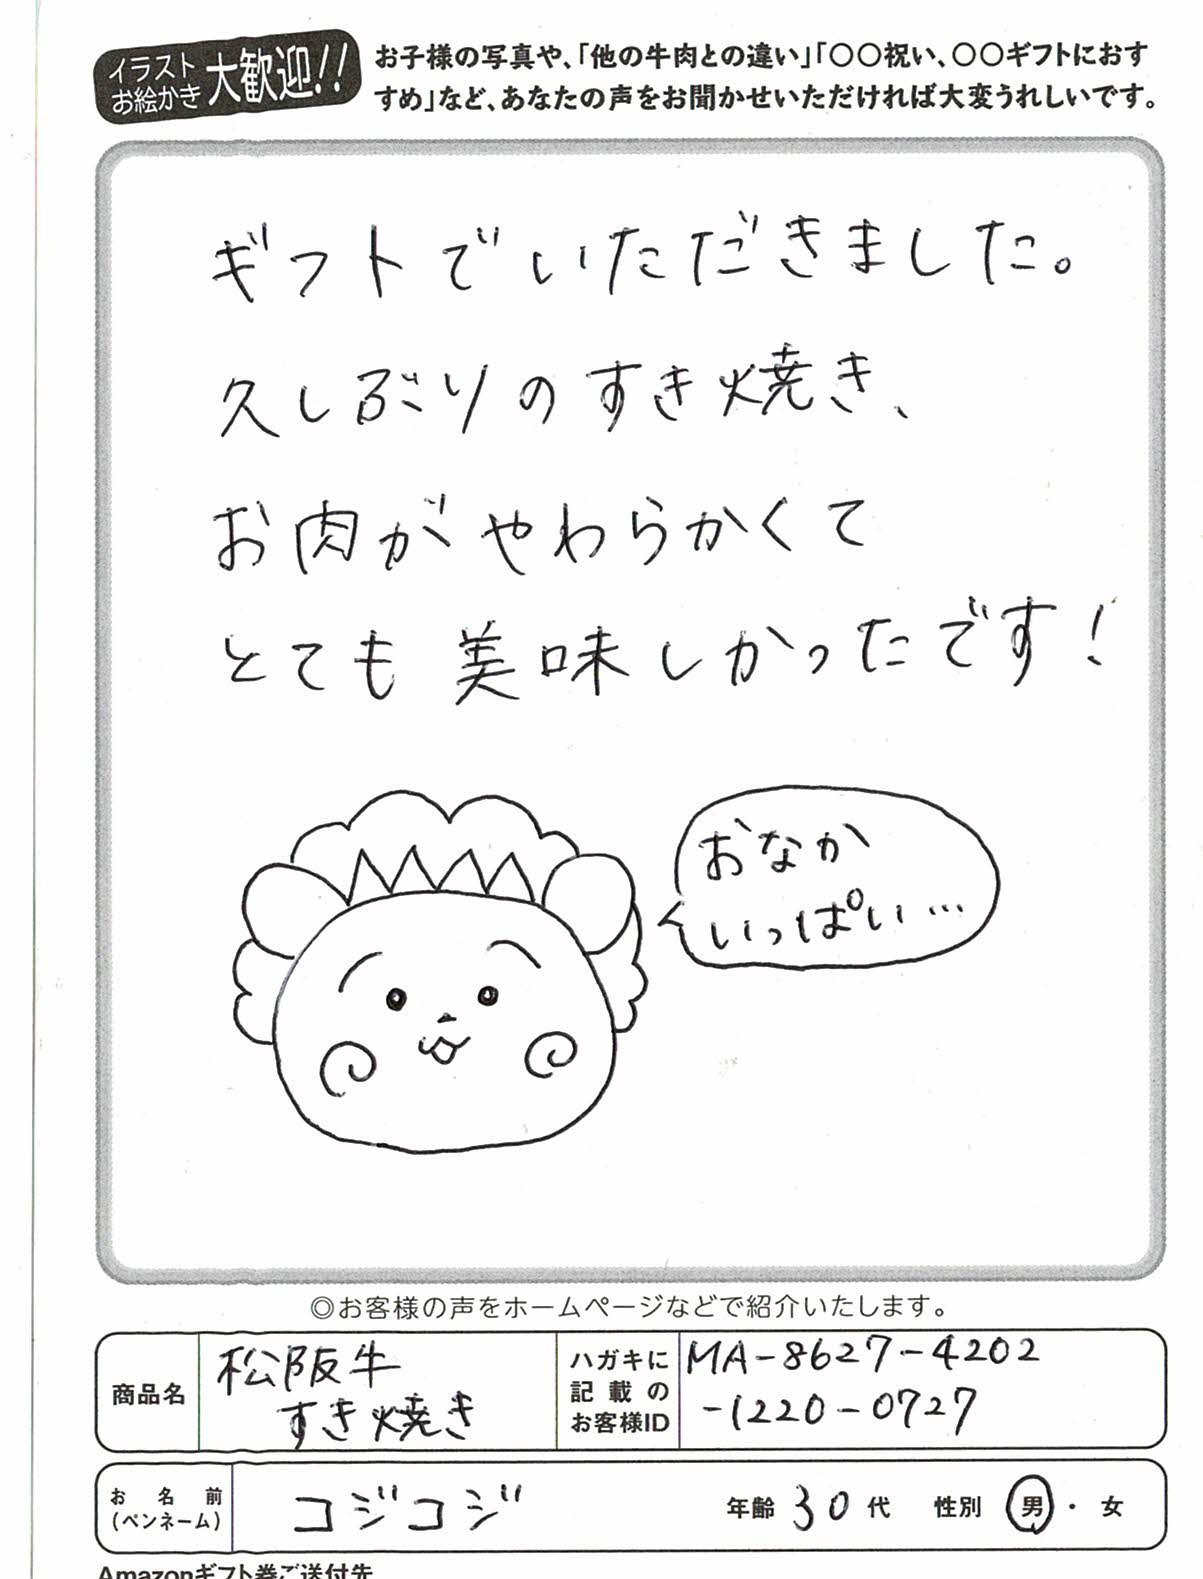 イラスト
お絵かき
大歓迎!!
お子様の写真や、「他の牛肉との違い」「〇〇祝い、〇〇ギフトにおす
すめ」など、あなたの声をお聞かせいただければ大変うれしいです。
ギフトでいただきました。
久しぶりのすき焼き、
お肉がやわらかくて
とても美味しかったです!
おなか
いっぱい…
◎お客様の声をホームページなどで紹介いたします。
商品名
松阪牛
すき焼き
ハガキに
記載の
お客様ID
MA-8627-4202
-1220-0727
お名前
(ペンネーム)
コジコジ
年齢 30代 性別 男・女
Amazonギフト券ご送付先